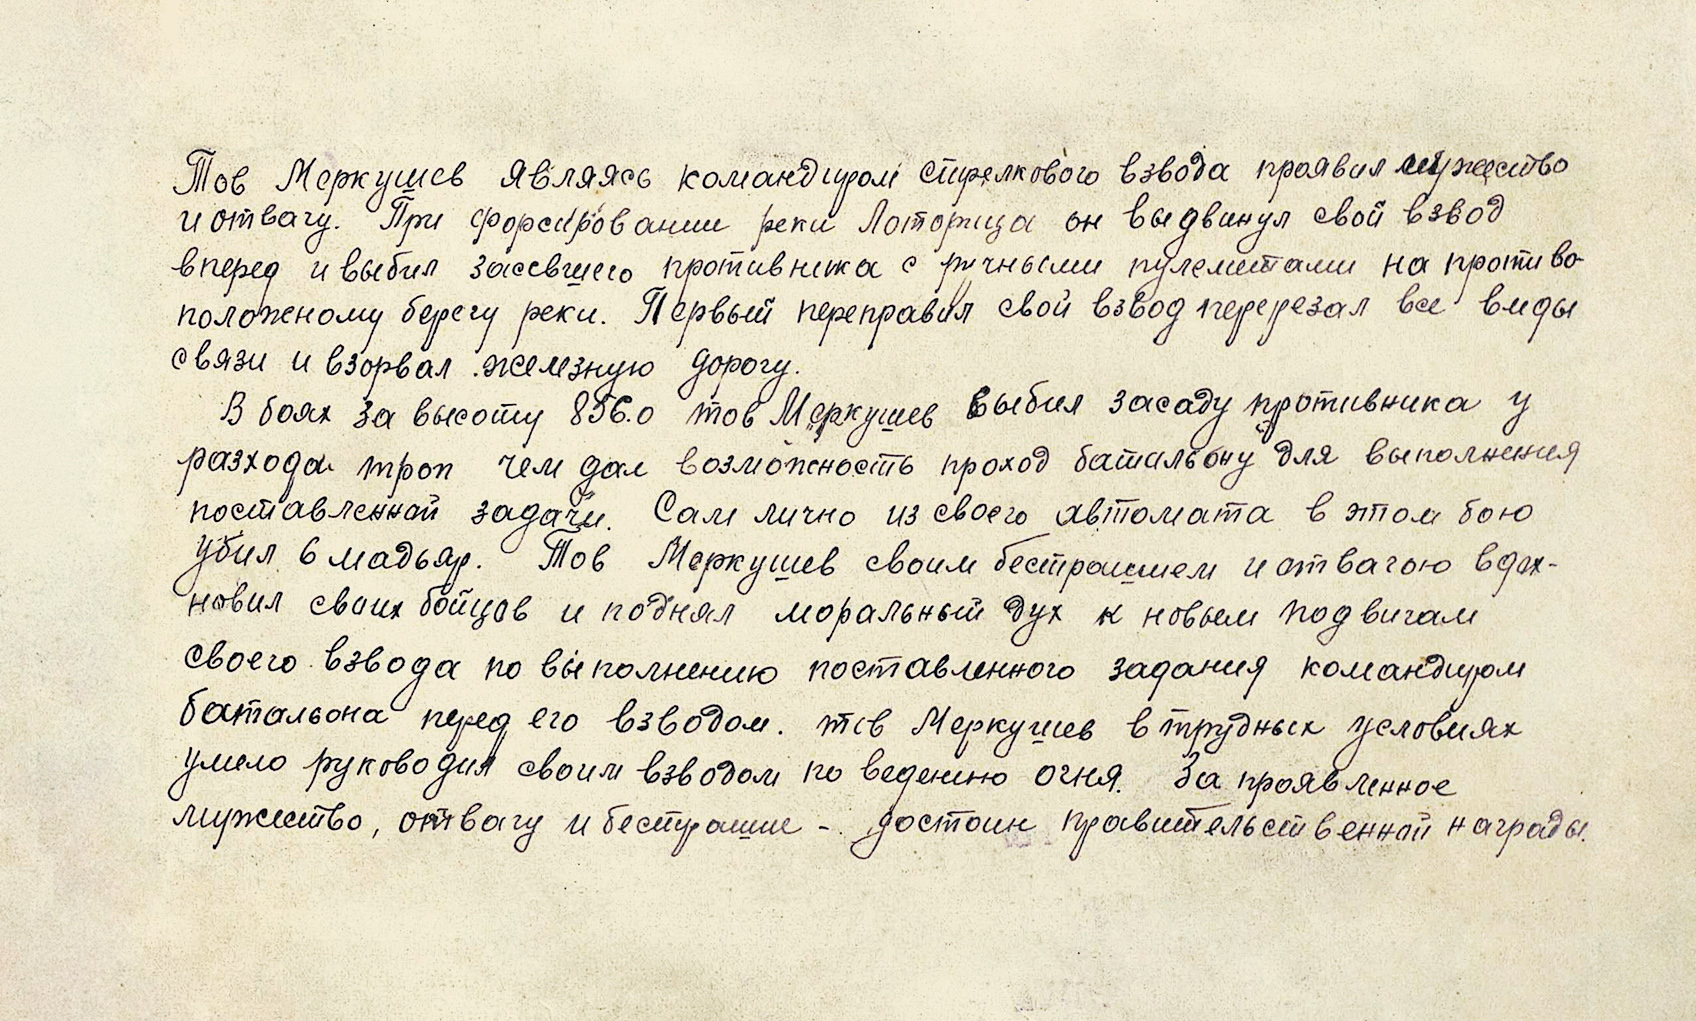 Тов Меркушев являясь командиром стрелкового взвода проявил мужество
и отвагу. При форсировании реки Лоторица он выдвинул свой взвод
вперед и выбил засевшего противника с ручными пулеметами на противо-
положному берегу реки. Первый переправил свой взвод перерезал все виды
связи и взорвал железную дорогу.
В боях за высоту 856.0 тов Меркушев выбил засаду противника у
разхода троп чем дал возможность проход батальону для выполнения
поставленной задачи. Сам лично из своего автомата в этом бою
убил 6 мадьяр. Тов Меркушев своим бестрашием и отвагою вдох-
новил своих бойцов и поднял моральный дух к новым подвигам
своего взвода по выполнению поставленного задания командиром
батальона перед его взводом. тов Меркушев в трудных условиях
умело руководил своим взводом по ведению огня. За проявленное
мужество, отвагу и бестрашие - достоин правительственной награды.